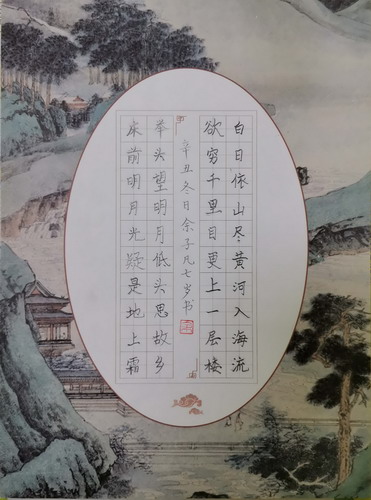 白日依山尽黄河入海流
欲穷千里目更上一层楼
辛丑冬日余子凡七岁书
举头望明月低头思故乡
床前明月光疑是地上霜